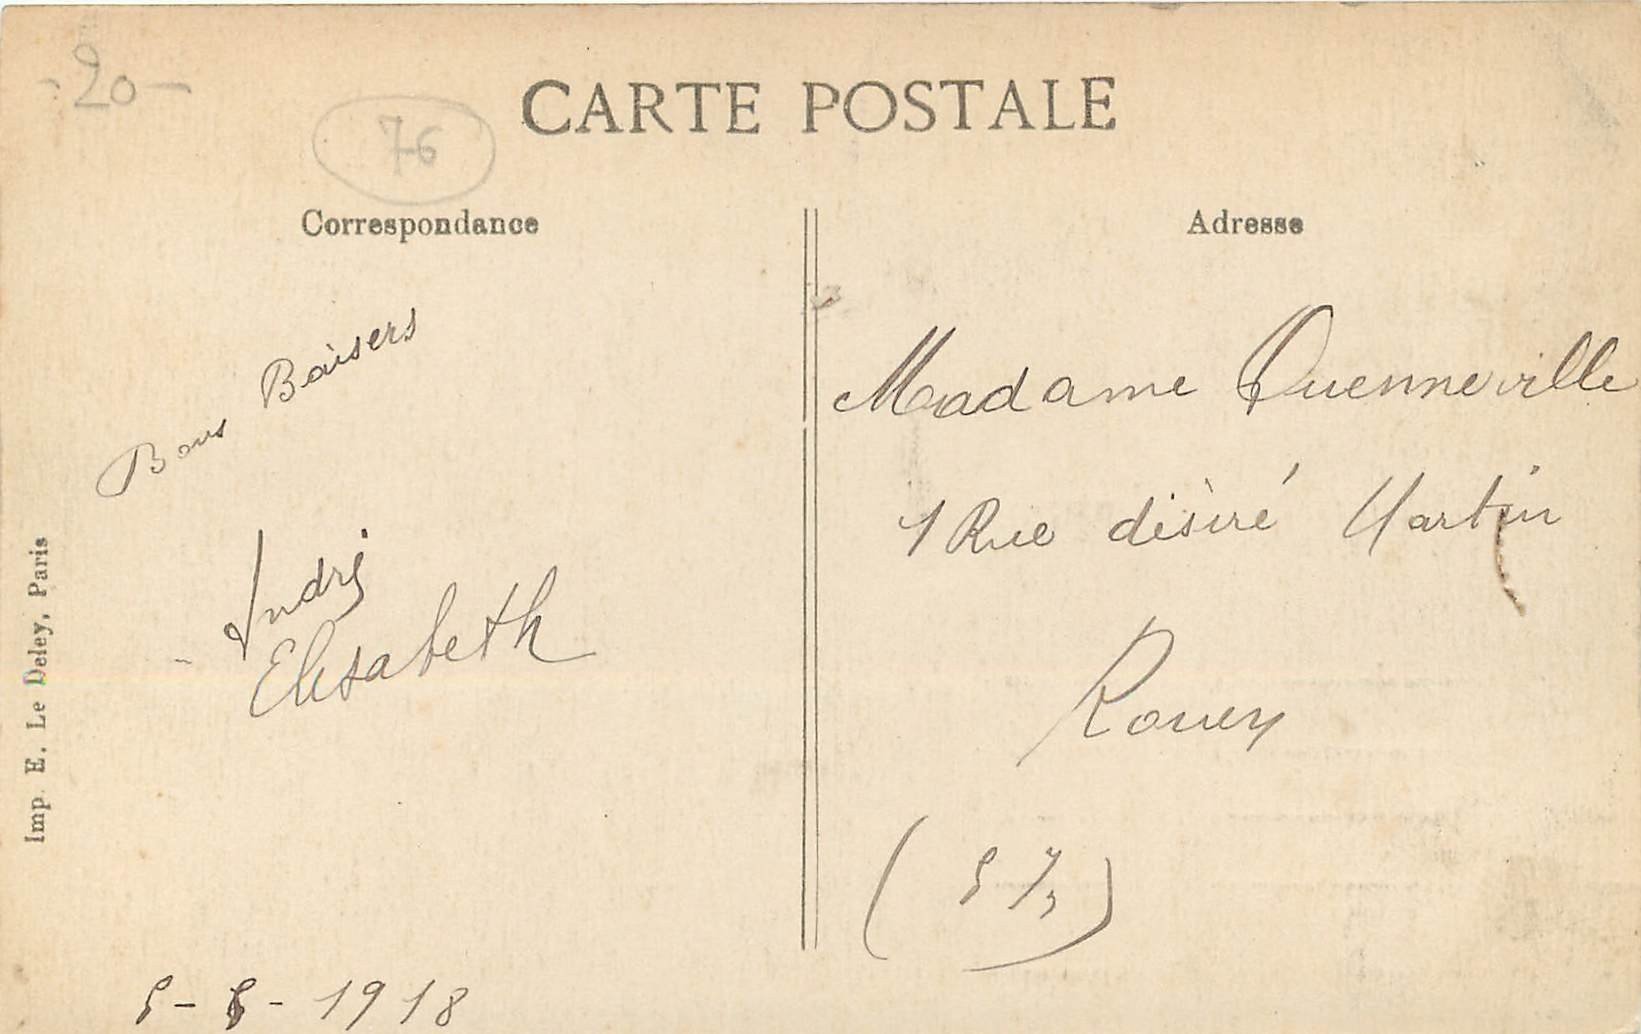 - 20 -
76
CARTE POSTALE
Correspondance
Adresse
Bons Baisers
André
Elisabeth
5-8-1918
Madame Quenneville
1 Rue désiré Martin
Rouen
(S I)
Imp. E. Le Deley, Paris